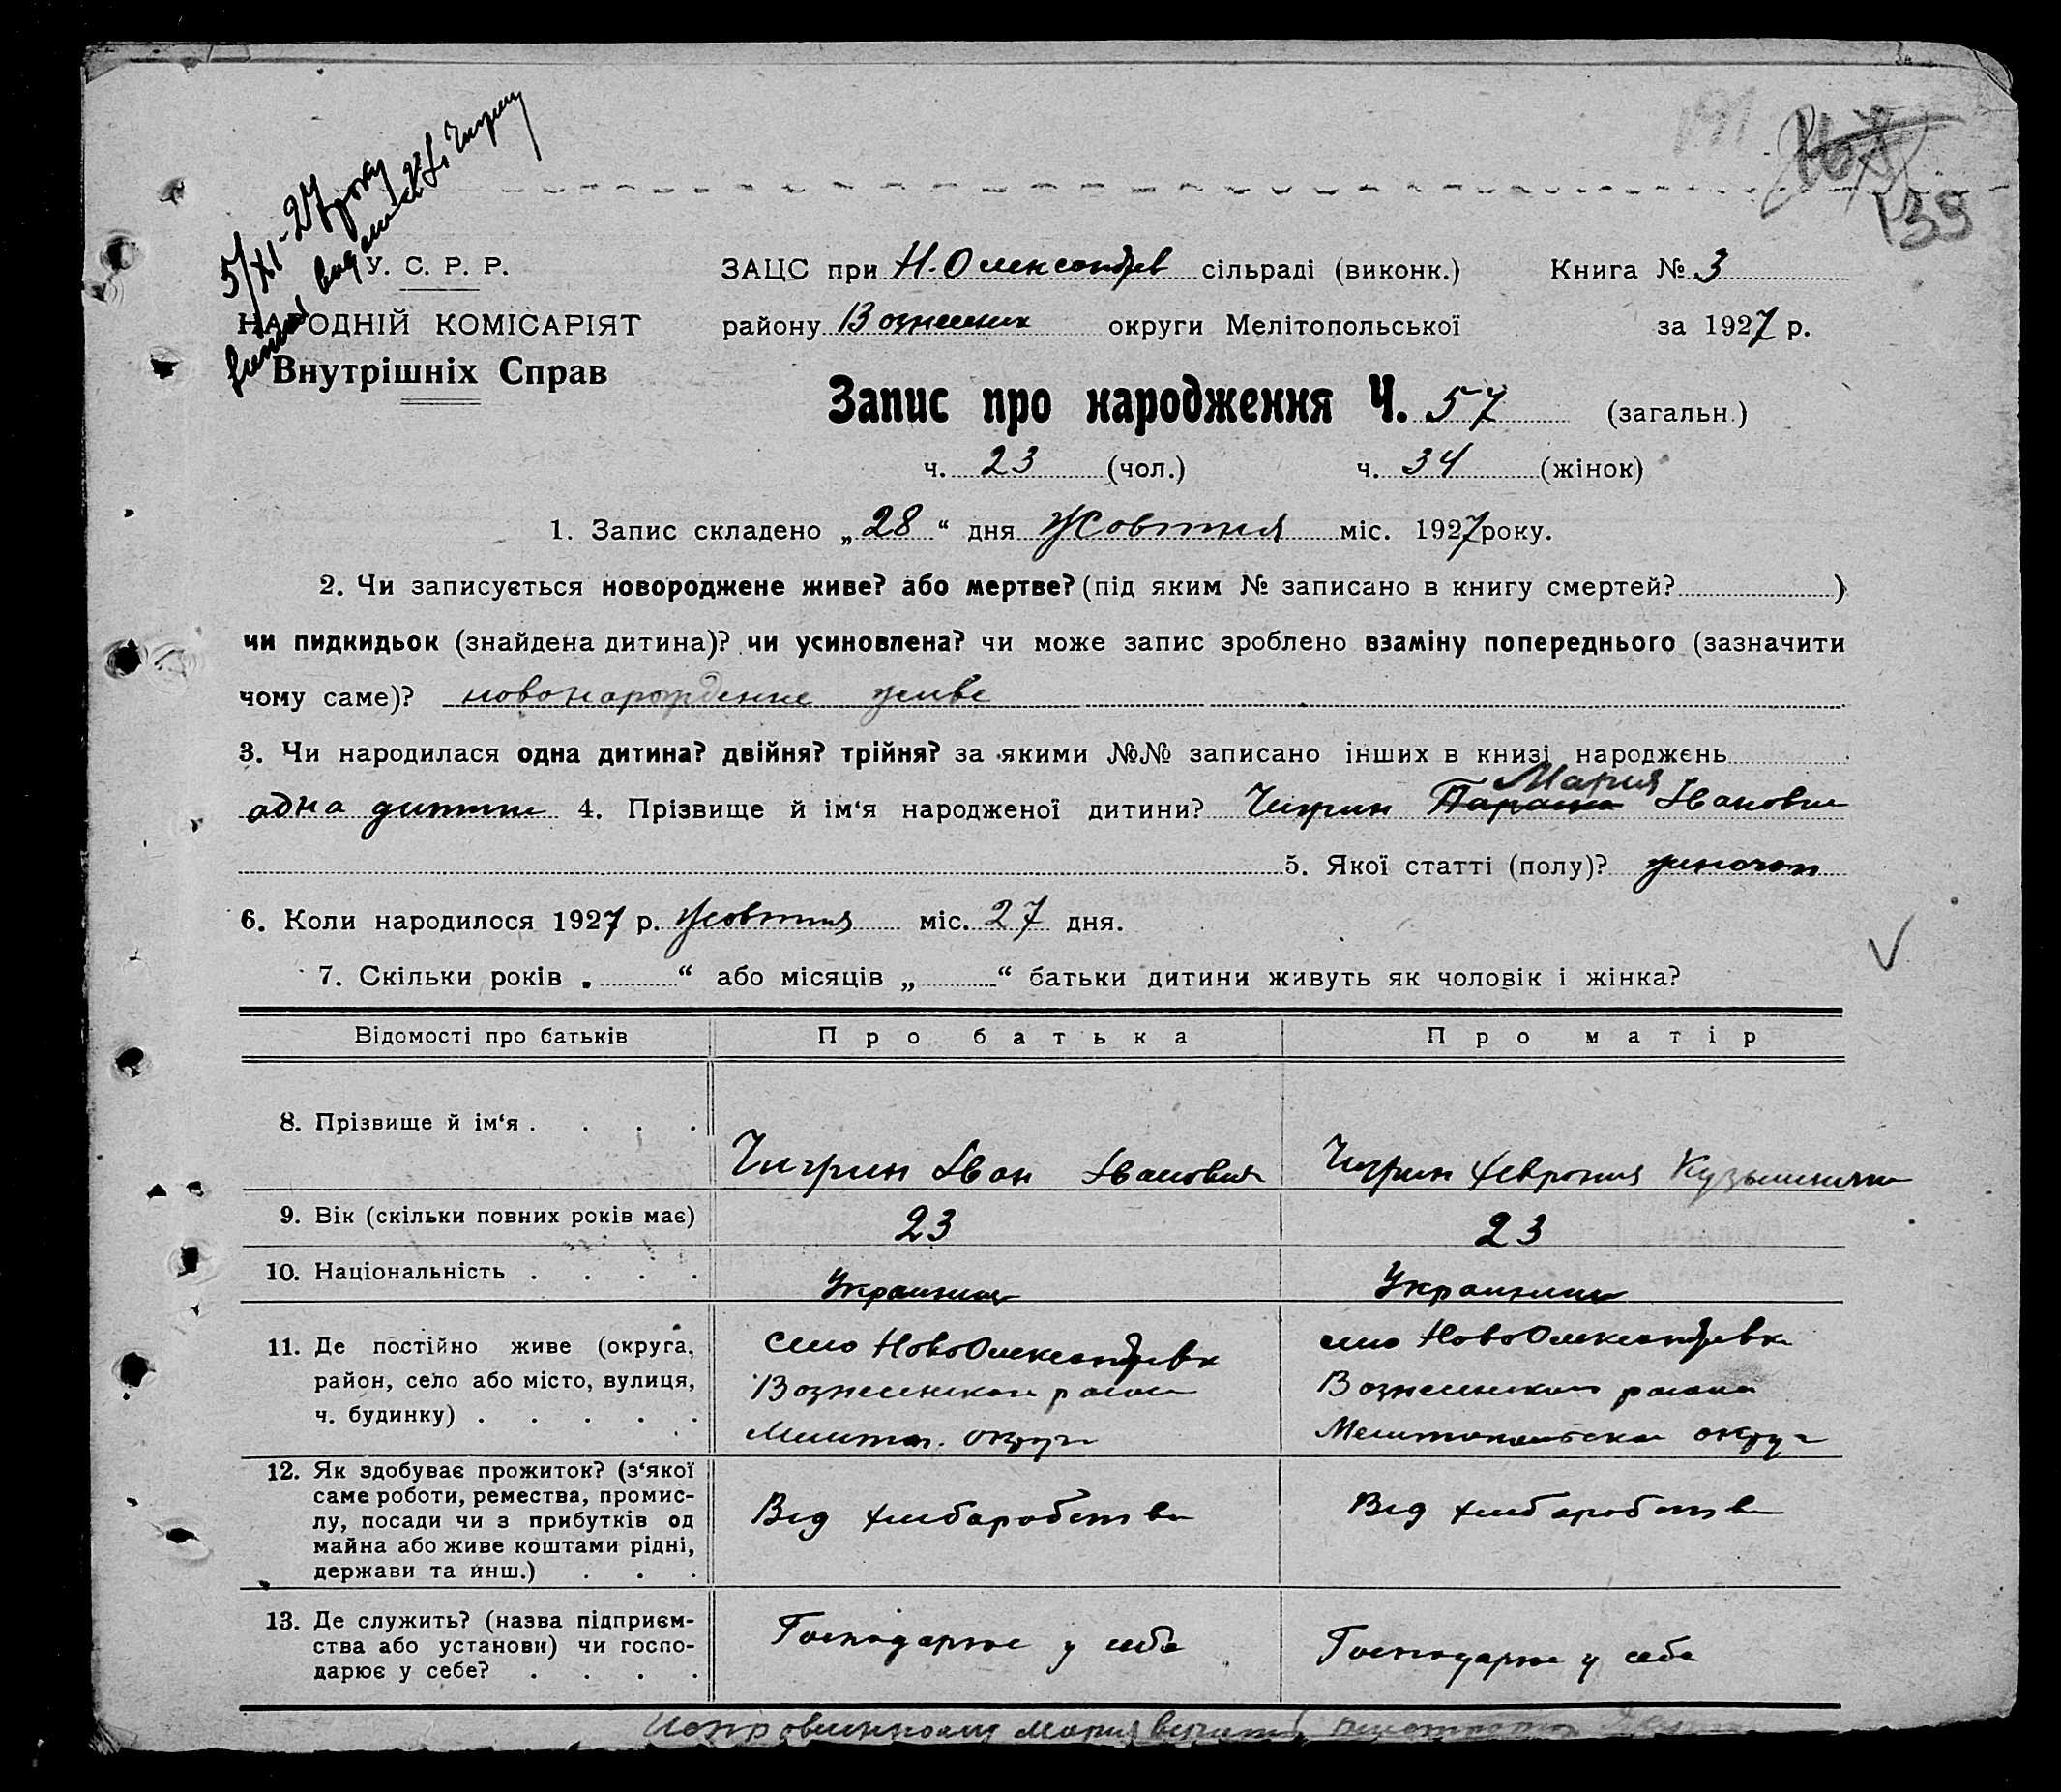 191
139
5/XI-27 року
У. С. Р. Р.
НАРОДНІЙ КОМІСАРІЯТ
Внутрішніх Справ
ЗАЦС при Н. Олександрів сільраді (виконк.) Книга № 3
району Вознесенск округи Мелітопольської за 1927 р.
Запис про народження Ч. 57 (загальн.)
ч. 23 (чол.) ч. 34 (жінок)
1. Запис складено „28“ дня Жовтня міс. 1927 року.
2. Чи записується новороджене живе? або мертве? (під яким № записано в книгу смертей? )
чи пидкидьок (знайдена дитина)? чи усиновлена? чи може запис зроблено взаміну попереднього (зазначити
чому саме)? новонарожденне живе
3. Чи народилася одна дитина? двійня? трійня? за якими №№ записано інших в книзі народжень
Мария
одна дитина 4. Прізвище й ім‘я народженої дитини? Чигрин Параска Івановна
5. Якої статті (полу)? жиночої
6. Коли народилося 1927 р. жовтня міс. 27 дня.
7. Скільки років „ “ або місяців „ “ батьки дитини живуть як чоловік і жінка?
Відомості про батьків Про батька Про матір
8. Прізвище й ім‘я . . . . Чигрин Іван Іванович Чигрин Феврония Кузьминична
9. Вік (скільки повних років має) 23 23
10. Національність . . . . Украинец Украинка
11. Де постійно живе (округа, село НовоОлександрівка село НовоОлександрівка
район, село або місто, вулиця, Вознесенского района Вознесенского района
ч. будинку) . . . . . Мелитоп. округи Мелитопольскои округи
12. Як здобуває прожиток? (з‘якої
саме роботи, ремества, промис-
лу, посади чи з прибутків од Від хлибаробства Від хлибаробства
майна або живе коштами рідні,
держави та инш.) . . .
13. Де служить? (назва підприєм-
ства або установи) чи госпо- Господарює у себе Господарює у себе
дарює у себе? . . . .
Исправленному Мария верить